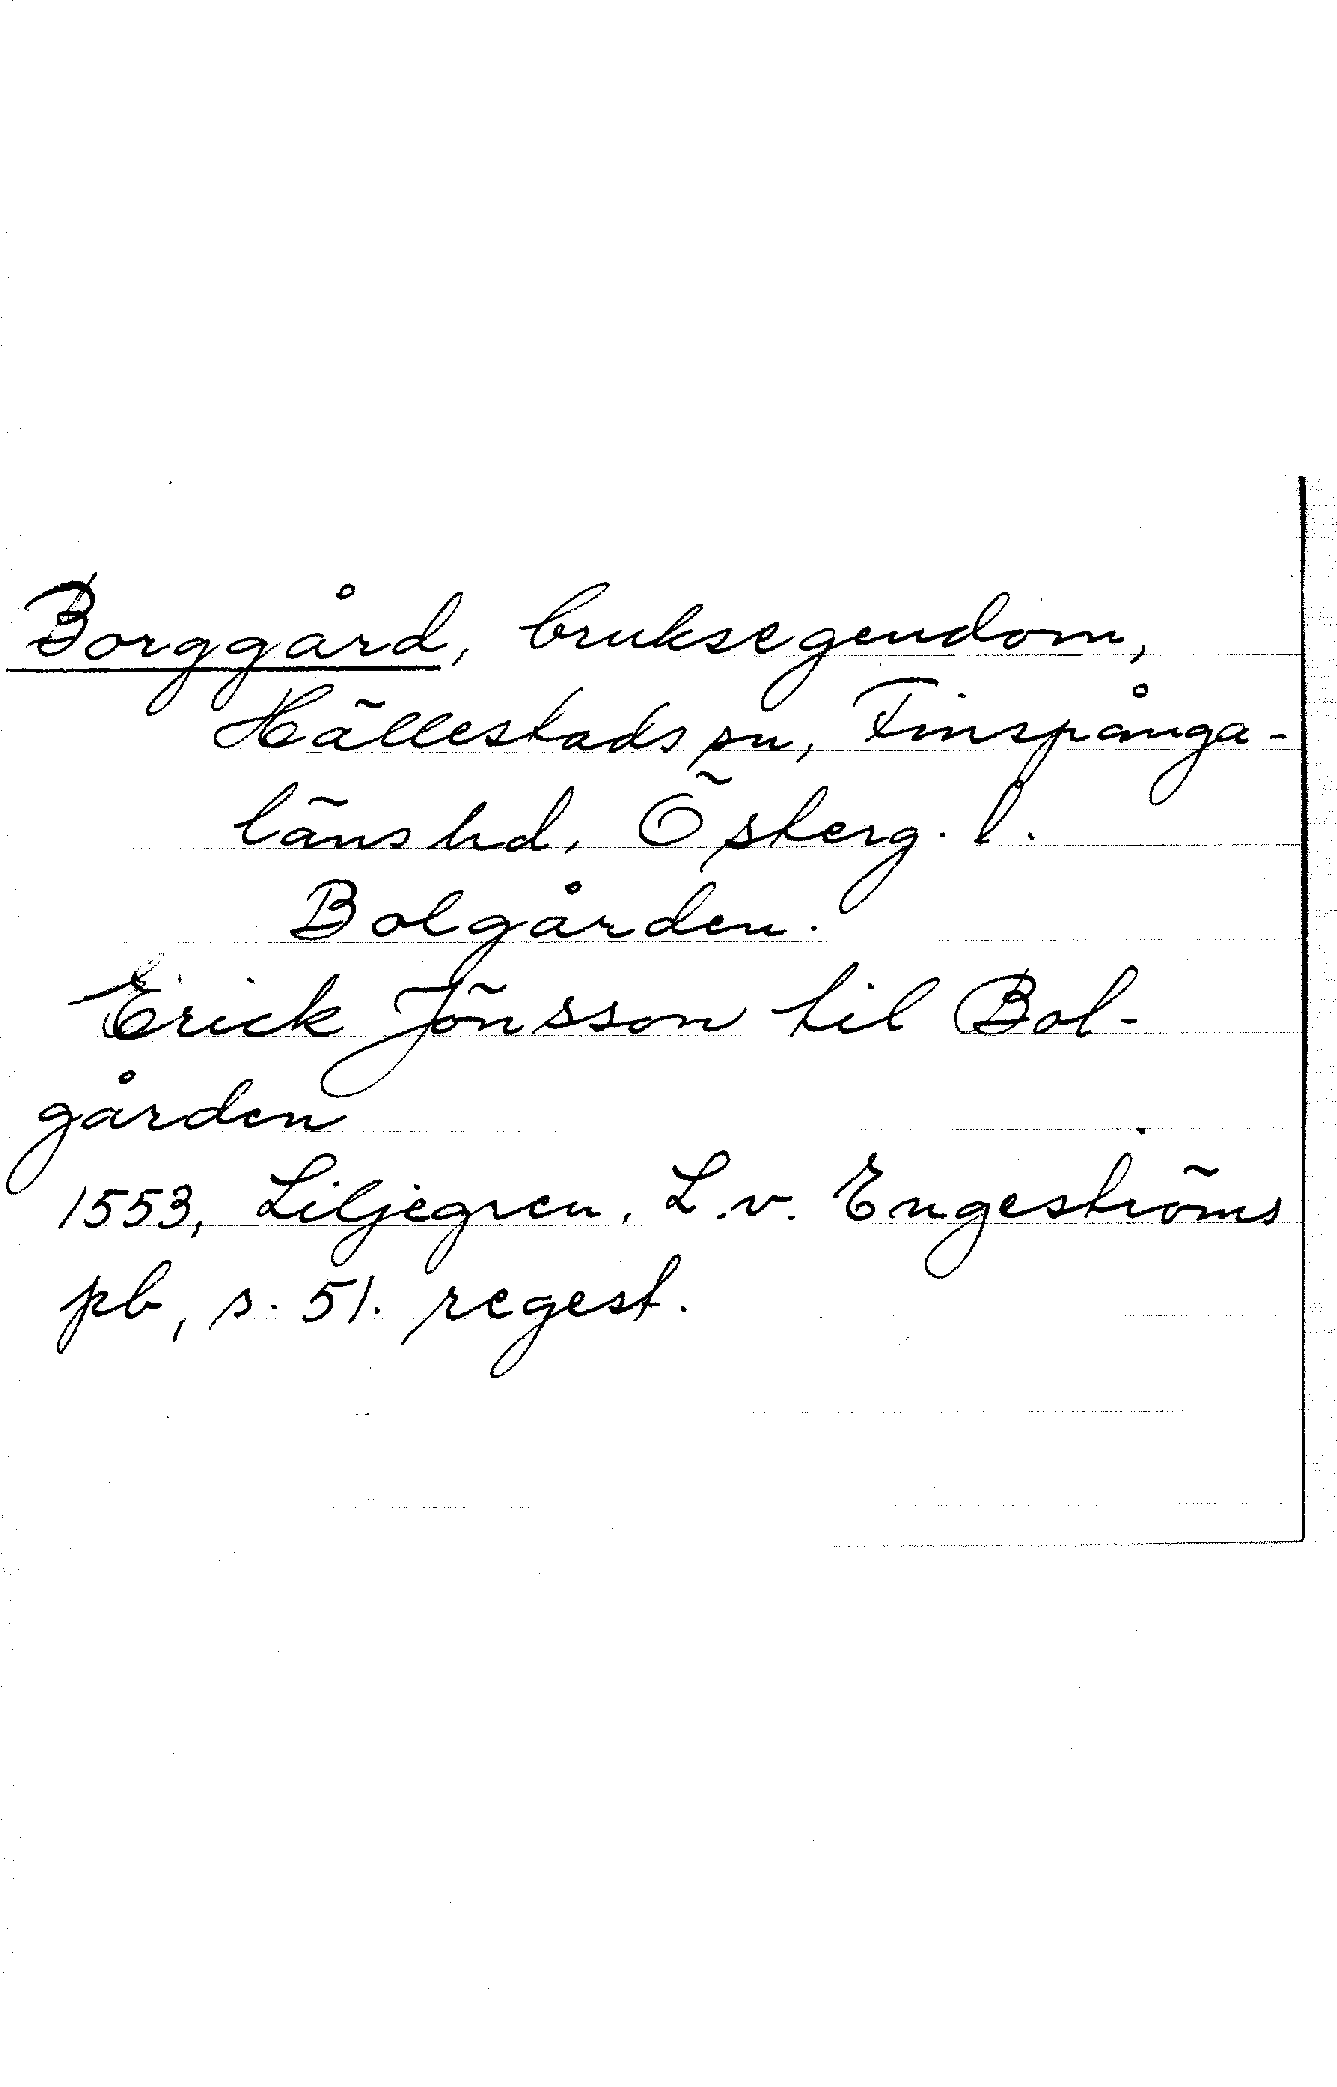 Borggård, bruksegendom,
Hällestads sn, Finspånga-
läns hd, Österg. l.
Bolgården.
Erick Jönsson til Bol-
gården
1553, Liljegren, L. v. Engeströms
pb, s. 51. regest.